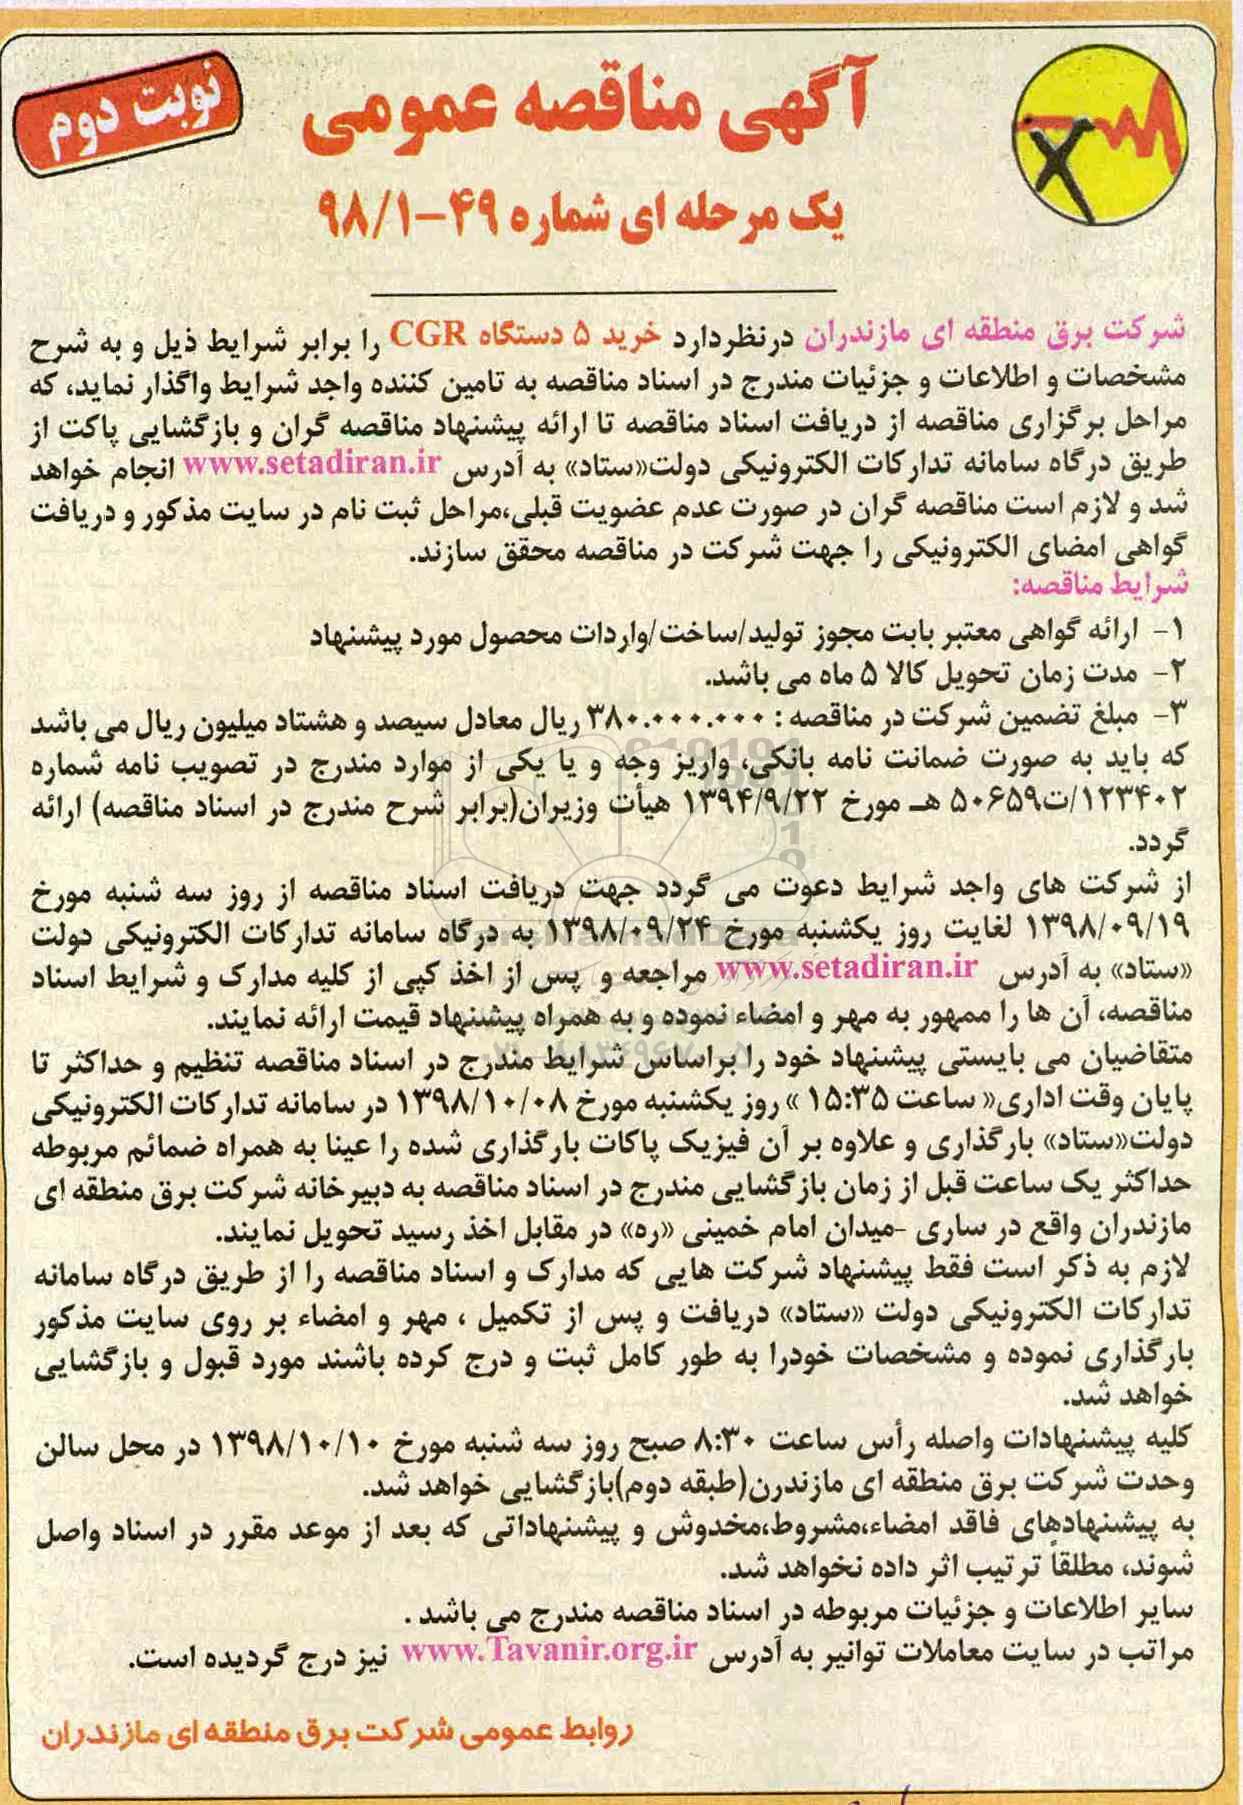 نوبت دوم
آگهی مناقصه عمومی
یک مرحله ای شماره ۴۹-۹۸/۱
شرکت برق منطقه ای مازندران درنظردارد خرید ۵ دستگاه CGR را برابر شرایط ذیل و به شرح
مشخصات و اطلاعات و جزئیات مندرج در اسناد مناقصه به تامین کننده واجد شرایط واگذار نماید، که
مراحل برگزاری مناقصه از دریافت اسناد مناقصه تا ارائه پیشنهاد مناقصه گران و بازگشایی پاکت از
طریق درگاه سامانه تدارکات الکترونیکی دولت«ستاد» به آدرس www.setadiran.ir انجام خواهد
شد و لازم است مناقصه گران در صورت عدم عضویت قبلی،مراحل ثبت نام در سایت مذکور و دریافت
گواهی امضای الکترونیکی را جهت شرکت در مناقصه محقق سازند.
شرایط مناقصه:
۱- ارائه گواهی معتبر بابت مجوز تولید/ساخت/واردات محصول مورد پیشنهاد
۲- مدت زمان تحویل کالا ۵ ماه می باشد.
۳- مبلغ تضمین شرکت در مناقصه : ۳۸۰.۰۰۰.۰۰۰ ریال معادل سیصد و هشتاد میلیون ریال می باشد
که باید به صورت ضمانت نامه بانکی، واریز وجه و یا یکی از موارد مندرج در تصویب نامه شماره
۱۲۳۴۰۲/ت۵۰۶۵۹ هـ مورخ ۱۳۹۴/۹/۲۲ هیأت وزیران(برابر شرح مندرج در اسناد مناقصه) ارائه
گردد.
از شرکت های واجد شرایط دعوت می گردد جهت دریافت اسناد مناقصه از روز سه شنبه مورخ
۱۳۹۸/۰۹/۱۹ لغایت روز یکشنبه مورخ ۱۳۹۸/۰۹/۲۴ به درگاه سامانه تدارکات الکترونیکی دولت
«ستاد» به آدرس www.setadiran.ir مراجعه و پس از اخذ کپی از کلیه مدارک و شرایط اسناد
مناقصه، آن ها را ممهور به مهر و امضاء نموده و به همراه پیشنهاد قیمت ارائه نمایند.
متقاضیان می بایستی پیشنهاد خود را براساس شرایط مندرج در اسناد مناقصه تنظیم و حداکثر تا
پایان وقت اداری« ساعت ۱۵:۳۵ » روز یکشنبه مورخ ۱۳۹۸/۱۰/۰۸ در سامانه تدارکات الکترونیکی
دولت«ستاد» بارگذاری و علاوه بر آن فیزیک پاکات بارگذاری شده را عینا به همراه ضمائم مربوطه
حداکثر یک ساعت قبل از زمان بازگشایی مندرج در اسناد مناقصه به دبیرخانه شرکت برق منطقه ای
مازندران واقع در ساری -میدان امام خمینی «ره» در مقابل اخذ رسید تحویل نمایند.
لازم به ذکر است فقط پیشنهاد شرکت هایی که مدارک و اسناد مناقصه را از طریق درگاه سامانه
تدارکات الکترونیکی دولت «ستاد» دریافت و پس از تکمیل ، مهر و امضاء بر روی سایت مذکور
بارگذاری نموده و مشخصات خودرا به طور کامل ثبت و درج کرده باشند مورد قبول و بازگشایی
خواهد شد.
کلیه پیشنهادات واصله رأس ساعت ۸:۳۰ صبح روز سه شنبه مورخ ۱۳۹۸/۱۰/۱۰ در محل سالن
وحدت شرکت برق منطقه ای مازندرن(طبقه دوم)بازگشایی خواهد شد.
به پیشنهادهای فاقد امضاء،مشروط،مخدوش و پیشنهاداتی که بعد از موعد مقرر در اسناد واصل
شوند، مطلقاً ترتیب اثر داده نخواهد شد.
سایر اطلاعات و جزئیات مربوطه در اسناد مناقصه مندرج می باشد .
مراتب در سایت معاملات توانیر به آدرس www.Tavanir.org.ir نیز درج گردیده است.
روابط عمومی شرکت برق منطقه ای مازندران